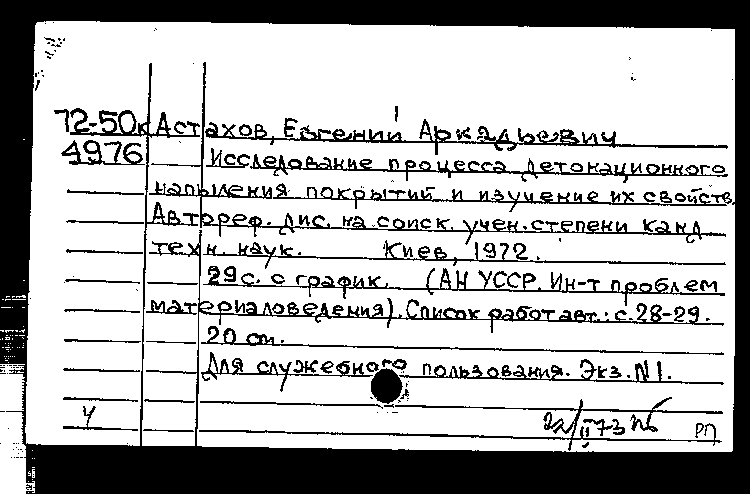 72-50к Астахов, Евгений Аркадьевич
4976 Исследование процесса детонационного
напыления покрытий и изучение их свойств.
Автореф. дис. на соиск. учен. степени канд.
техн. наук. Киев, 1972.
29 с. с график. (АН УССР. Ин-т проблем
материаловедения). Список работ авт.: с. 28-29.
20 см.
Для служебного пользования. Экз. N 1.
ч /II 73 РП